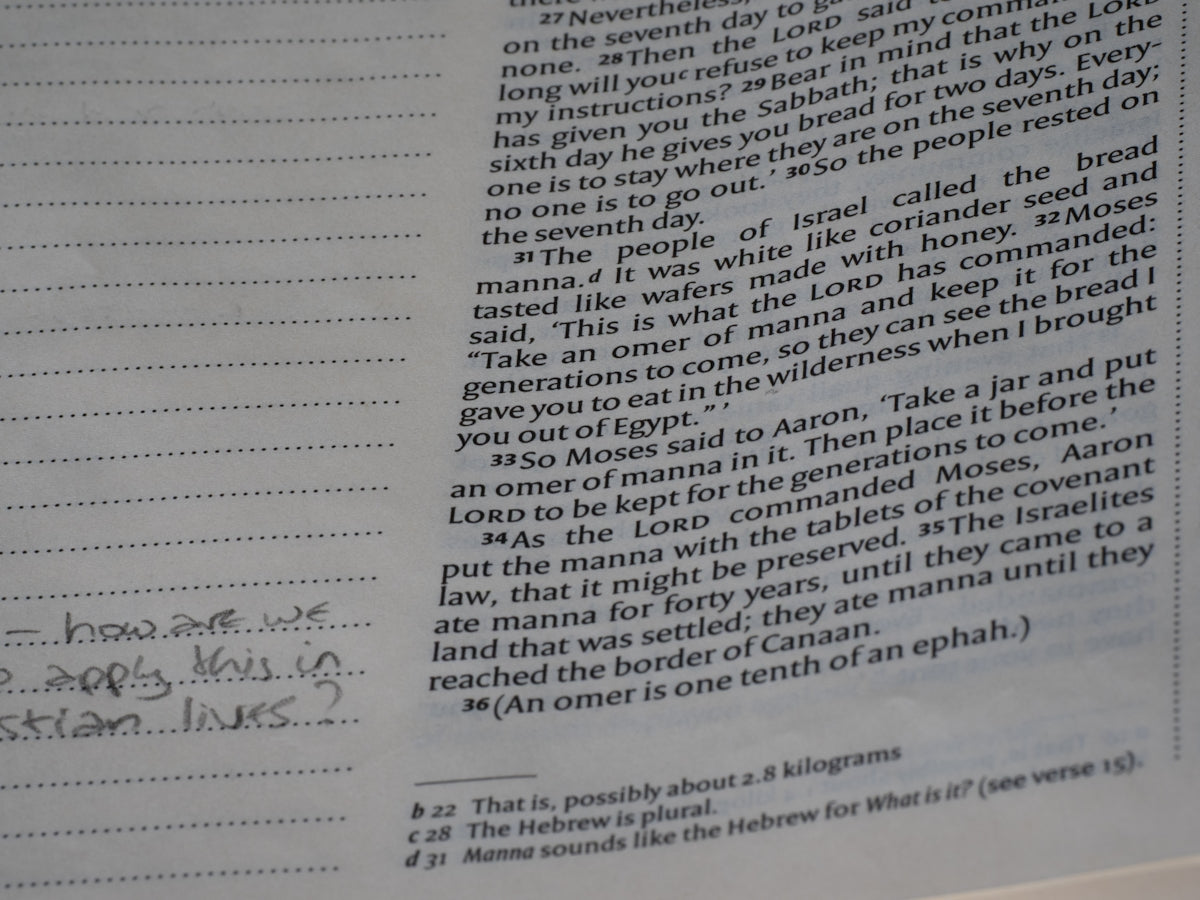 27 Nevertheless,
on the seventh day to
none. 28 Then the LORD said
long will you c refuse to keep my
my instructions? 29 Bear in mind that the LORD
has given you the Sabbath; that is why on the
sixth day he gives you bread for two days. Every-
one is to stay where they are on the seventh day;
no one is to go out.’ 30 So the people rested on
the seventh day.
31 The people of Israel called the bread
manna. d It was white like coriander seed and
tasted like wafers made with honey. 32 Moses
said, ‘This is what the LORD has commanded:
“Take an omer of manna and keep it for the
generations to come, so they can see the bread I
gave you to eat in the wilderness when I brought
you out of Egypt.” ’
33 So Moses said to Aaron, ‘Take a jar and put
an omer of manna in it. Then place it before the
LORD to be kept for the generations to come.’
34 As the LORD commanded Moses, Aaron
put the manna with the tablets of the covenant
law, that it might be preserved. 35 The Israelites
ate manna for forty years, until they came to a
land that was settled; they ate manna until they
reached the border of Canaan.
36 (An omer is one tenth of an ephah.)
b 22 That is, possibly about 2.8 kilograms
c 28 The Hebrew is plural.
d 31 Manna sounds like the Hebrew for What is it? (see verse 15).
– how are we
apply this in
stian lives?